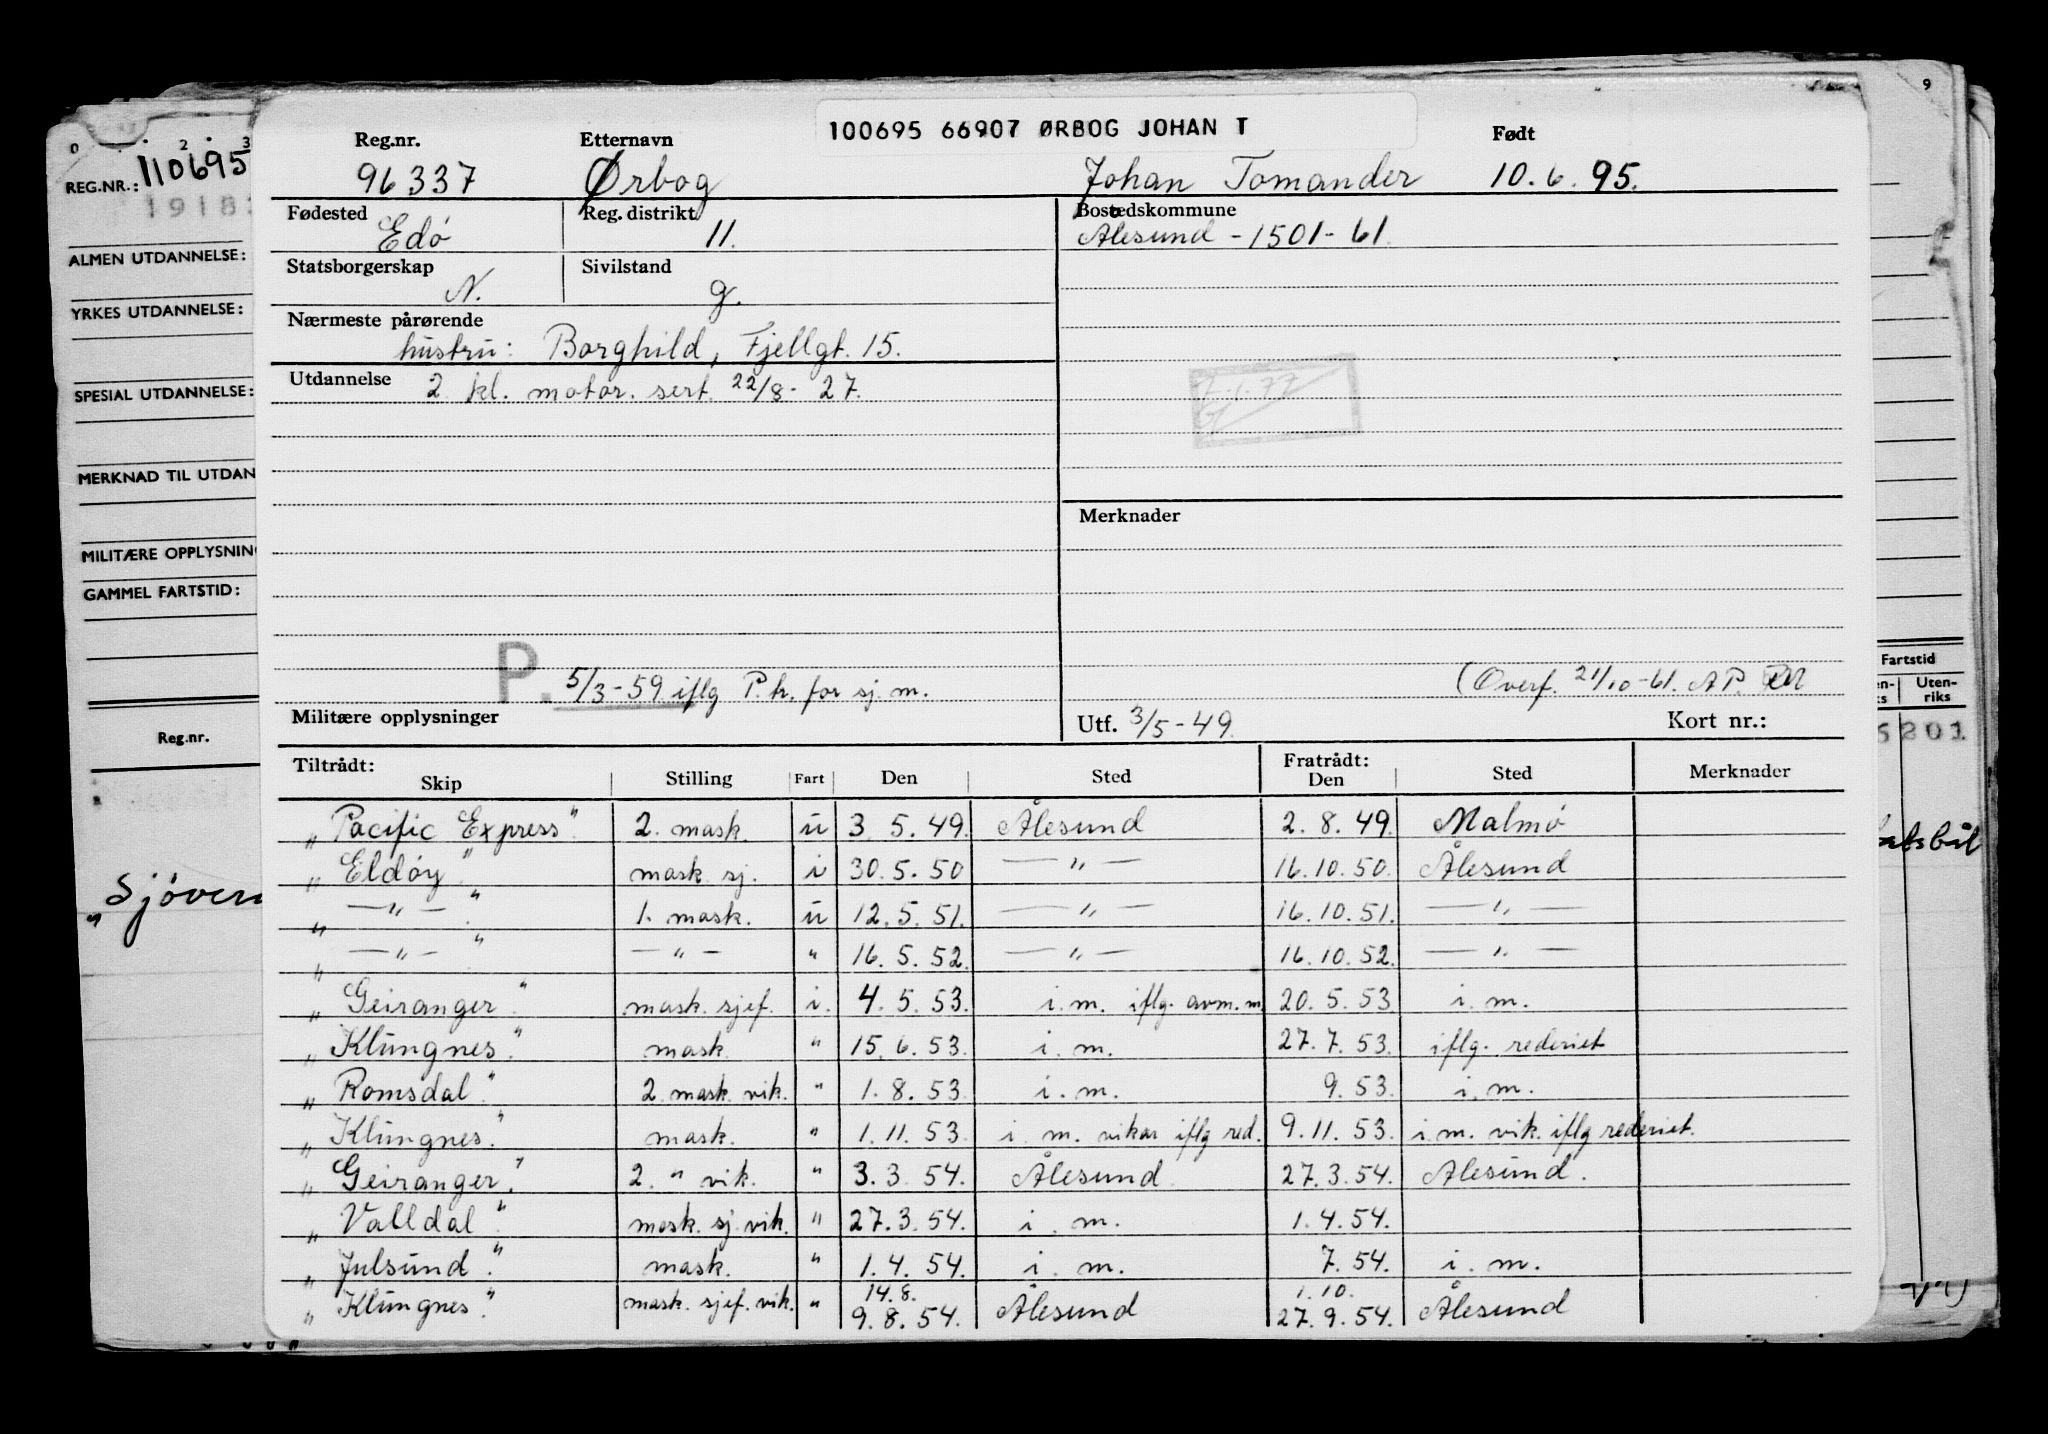 100695 66907 ØRBOG JOHAN T
Reg.nr. Etternavn Født
96337 Ørbog Johan Tomander 10.6.95.
Fødested Reg. distrikt Bostedskommune
Edø 11. Ålesund - 1501 - 61.
Statsborgerskap Sivilstand
N. g.
Nærmeste pårørende
hustru: Borghild, Fjellgt. 15.
Utdannelse 2. kl. motor. sert. 22/8 - 27.
7.1.77
Merknader
P. 5/3-59 iflg P.tr. for sj.m.
(Overf. 21/10-61. AP.
Militære opplysninger Utf. 3/5-49. Kort nr.:
Tiltrådt: Fratrådt:
Skip Stilling Fart Den Sted Den Sted Merknader
„Pacific Express" 2. mask. u 3.5.49. Ålesund 2.8.49. Malmö
„Eldøy" mask. sj. i 30.5.50 —"— 16.10.50. Ålesund
„—"—" 1. mask. u 12.5.51. —"— 16.10.51. —"—
„—"—" —"— " 16.5.52. —"— 16.10.52. —"—
„Geiranger" mask. sjef. i. 4.5.53. i.m. iflg. avm. m 20.5.53 i.m.
„Klungnes" mask. " 15.6.53. i.m. 27.7.53. iflg. rederiet
„Romsdal" 2. mask. vik. " 1.8.53. i.m. 9.53. i.m.
„Klungnes" mask. " 1.11.53. i.m. vikar iflg red. 9.11.53. i.m. vik. iflg rederiet.
„Geiranger" 2. " vik. " 3.3.54. Ålesund 27.3.54. Ålesund.
„Valldal" mask. sj. vik. " 27.3.54. i.m. 1.4.54.
„Julsund" mask. " 1.4.54. i.m. 7.54. i.m.
14.8. 1.10.
„Klungnes" mask. sjef. vik. " 9.8.54. Ålesund 27.9.54. Ålesund
0 2 3
REG.NR.: 110695
1918
ALMEN UTDANNELSE:
YRKES UTDANNELSE:
SPESIAL UTDANNELSE:
MERKNAD TIL UTDAN
MILITÆRE OPPLYSNIN
GAMMEL FARTSTID:
Reg.nr.
„Sjøver
9
Fartstid
Uten-
riks
5201